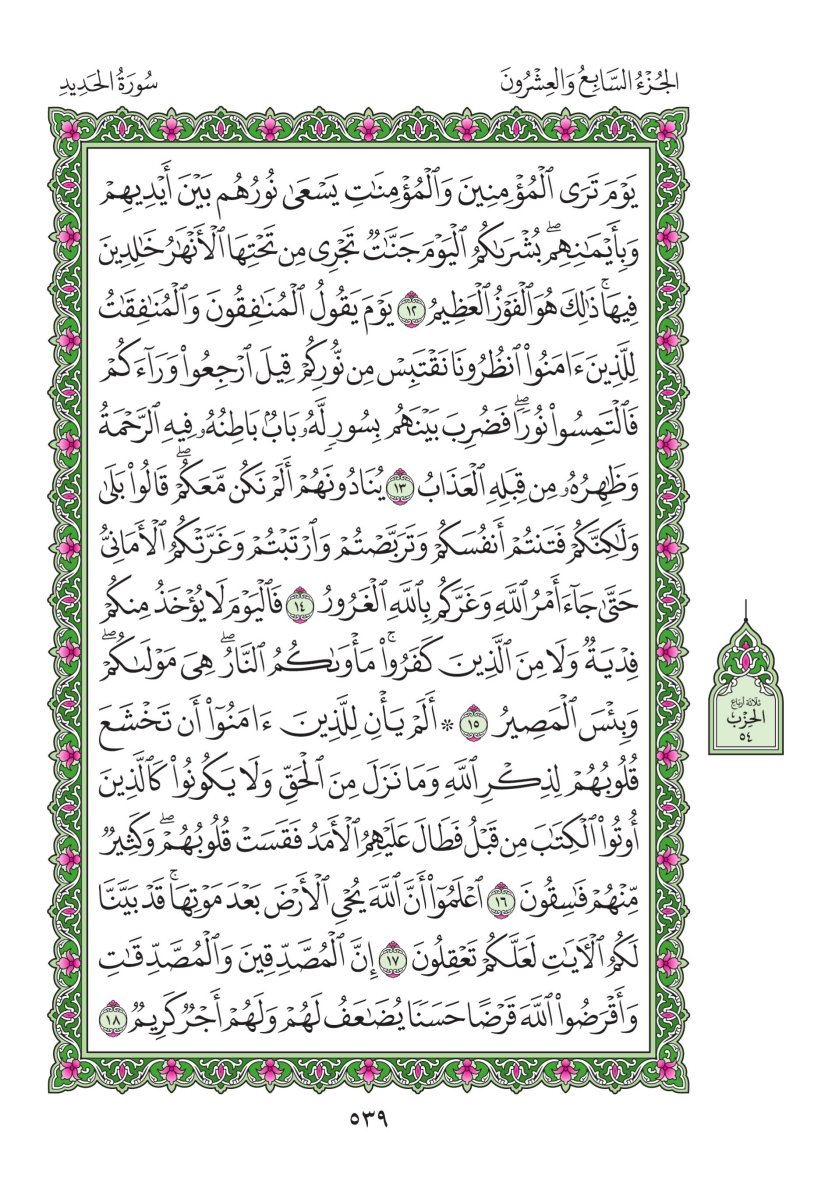 الجُزْءُ السَّابِعُ وَالعِشْرُونَ
سُورَةُ الحَدِيدِ
يَوْمَ تَرَى ٱلْمُؤْمِنِينَ وَٱلْمُؤْمِنَٰتِ يَسْعَىٰ نُورُهُم بَيْنَ أَيْدِيهِمْ
وَبِأَيْمَٰنِهِمۖ بُشْرَىٰكُمُ ٱلْيَوْمَ جَنَّٰتٌ تَجْرِى مِن تَحْتِهَا ٱلْأَنْهَٰرُ خَٰلِدِينَ
فِيهَاۚ ذَٰلِكَ هُوَ ٱلْفَوْزُ ٱلْعَظِيمُ ١٢ يَوْمَ يَقُولُ ٱلْمُنَٰفِقُونَ وَٱلْمُنَٰفِقَٰتُ
لِلَّذِينَ ءَامَنُوا۟ ٱنظُرُونَا نَقْتَبِسْ مِن نُّورِكُمْ قِيلَ ٱرْجِعُوا۟ وَرَآءَكُمْ
فَٱلْتَمِسُوا۟ نُورًاۖ فَضُرِبَ بَيْنَهُم بِسُورٍ لَّهُۥ بَابٌۢ بَاطِنُهُۥ فِيهِ ٱلرَّحْمَةُ
وَظَٰهِرُهُۥ مِن قِبَلِهِ ٱلْعَذَابُ ١٣ يُنَادُونَهُمْ أَلَمْ نَكُن مَّعَكُمْۖ قَالُوا۟ بَلَىٰ
وَلَٰكِنَّكُمْ فَتَنتُمْ أَنفُسَكُمْ وَتَرَبَّصْتُمْ وَٱرْتَبْتُمْ وَغَرَّتْكُمُ ٱلْأَمَانِىُّ
حَتَّىٰ جَآءَ أَمْرُ ٱللَّهِ وَغَرَّكُم بِٱللَّهِ ٱلْغَرُورُ ١٤ فَٱلْيَوْمَ لَا يُؤْخَذُ مِنكُمْ
فِدْيَةٌ وَلَا مِنَ ٱلَّذِينَ كَفَرُوا۟ۚ مَأْوَىٰكُمُ ٱلنَّارُۖ هِىَ مَوْلَىٰكُمْۖ
وَبِئْسَ ٱلْمَصِيرُ ١٥ ۞ أَلَمْ يَأْنِ لِلَّذِينَ ءَامَنُوٓا۟ أَن تَخْشَعَ
قُلُوبُهُمْ لِذِكْرِ ٱللَّهِ وَمَا نَزَلَ مِنَ ٱلْحَقِّ وَلَا يَكُونُوا۟ كَٱلَّذِينَ
أُوتُوا۟ ٱلْكِتَٰبَ مِن قَبْلُ فَطَالَ عَلَيْهِمُ ٱلْأَمَدُ فَقَسَتْ قُلُوبُهُمْۖ وَكَثِيرٌ
مِّنْهُمْ فَٰسِقُونَ ١٦ ٱعْلَمُوٓا۟ أَنَّ ٱللَّهَ يُحْىِ ٱلْأَرْضَ بَعْدَ مَوْتِهَاۚ قَدْ بَيَّنَّا
لَكُمُ ٱلْءَايَٰتِ لَعَلَّكُمْ تَعْقِلُونَ ١٧ إِنَّ ٱلْمُصَّدِّقِينَ وَٱلْمُصَّدِّقَٰتِ
وَأَقْرَضُوا۟ ٱللَّهَ قَرْضًا حَسَنًا يُضَٰعَفُ لَهُمْ وَلَهُمْ أَجْرٌ كَرِيمٌ ١٨
ثلاثة أرباع
الحِزْب
٥٤
٥٣٩